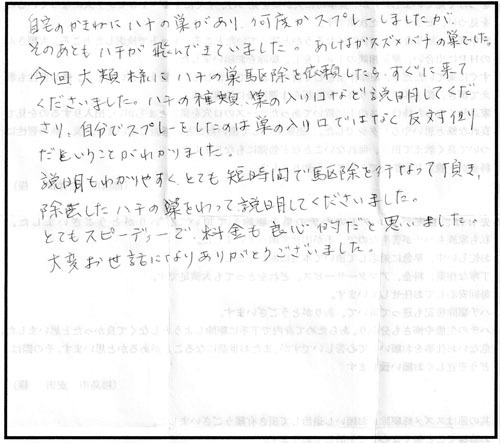 自宅のかきねにハチの巣があり、何度かスプレーしましたが、
そのあともハチが飛んできていました。あしながスズメバチの巣でした。
今回大類様にハチの巣駆除を依頼したら、すぐに来て
くださいました。ハチの種類、巣の入り口など説明してくだ
さり、自分でスプレーをしたのは巣の入り口ではなく反対側
だということがわかりました。
説明もわかりやすく、とても短時間で駆除を行なって頂き、
除去したハチの巣をわって説明してくださいました。
とてもスピーディーで、料金も良心的だと思いました。
大変お世話になりありがとうございました。